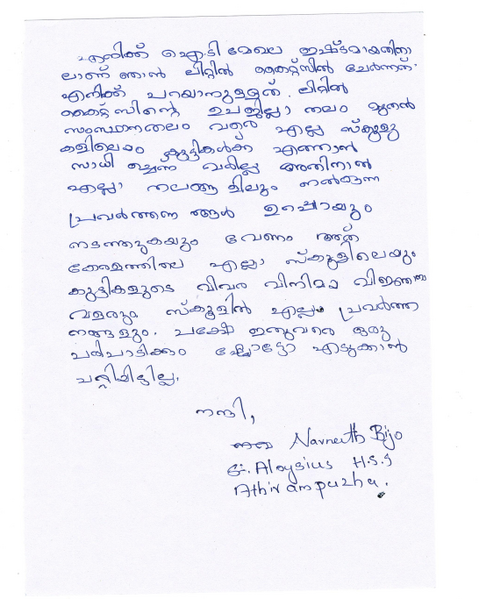 എനിക്ക് ഐടി മേഖല ഇഷ്ടമായതിനാ
ലാണ് ഞാൻ ലിറ്റിൽ കൈറ്റ്സിൽ ചേർന്നത്.
എനിക്ക് പറയാനുള്ളത്. ലിറ്റിൽ
കൈറ്റ്സിന്റെ ഉപജില്ലാ തലം മുതൽ
സംസ്ഥാനതലം വരെ എല്ലാ സ്കൂളു
കളിലെയും കുട്ടികൾക്ക് എത്താൻ
സാധിച്ചെന്നു വരില്ല അതിനാൽ
എല്ലാ തലങ്ങളിലും നൽകുന്ന
പ്രവർത്തനങ്ങൾ ഉറപ്പായും
നടത്തുകയും വേണം അത്
കേരളത്തിലെ എല്ലാ സ്കൂളിലെയും
കുട്ടികളുടെ വിവര വിനിമാ വിജ്ഞാനം
വളരും സ്കൂളിൽ എല്ലാം പ്രവർത്ത
നങ്ങളും. പക്ഷേ ഇതുവരെ ഒരു
പരിപാടിക്കും ഫോട്ടോ എടുക്കാൻ
പറ്റിയിട്ടില്ല.
നന്ദി,
Navneeth Bijo
St. Aloysius H.S.S
Athirampuzha.